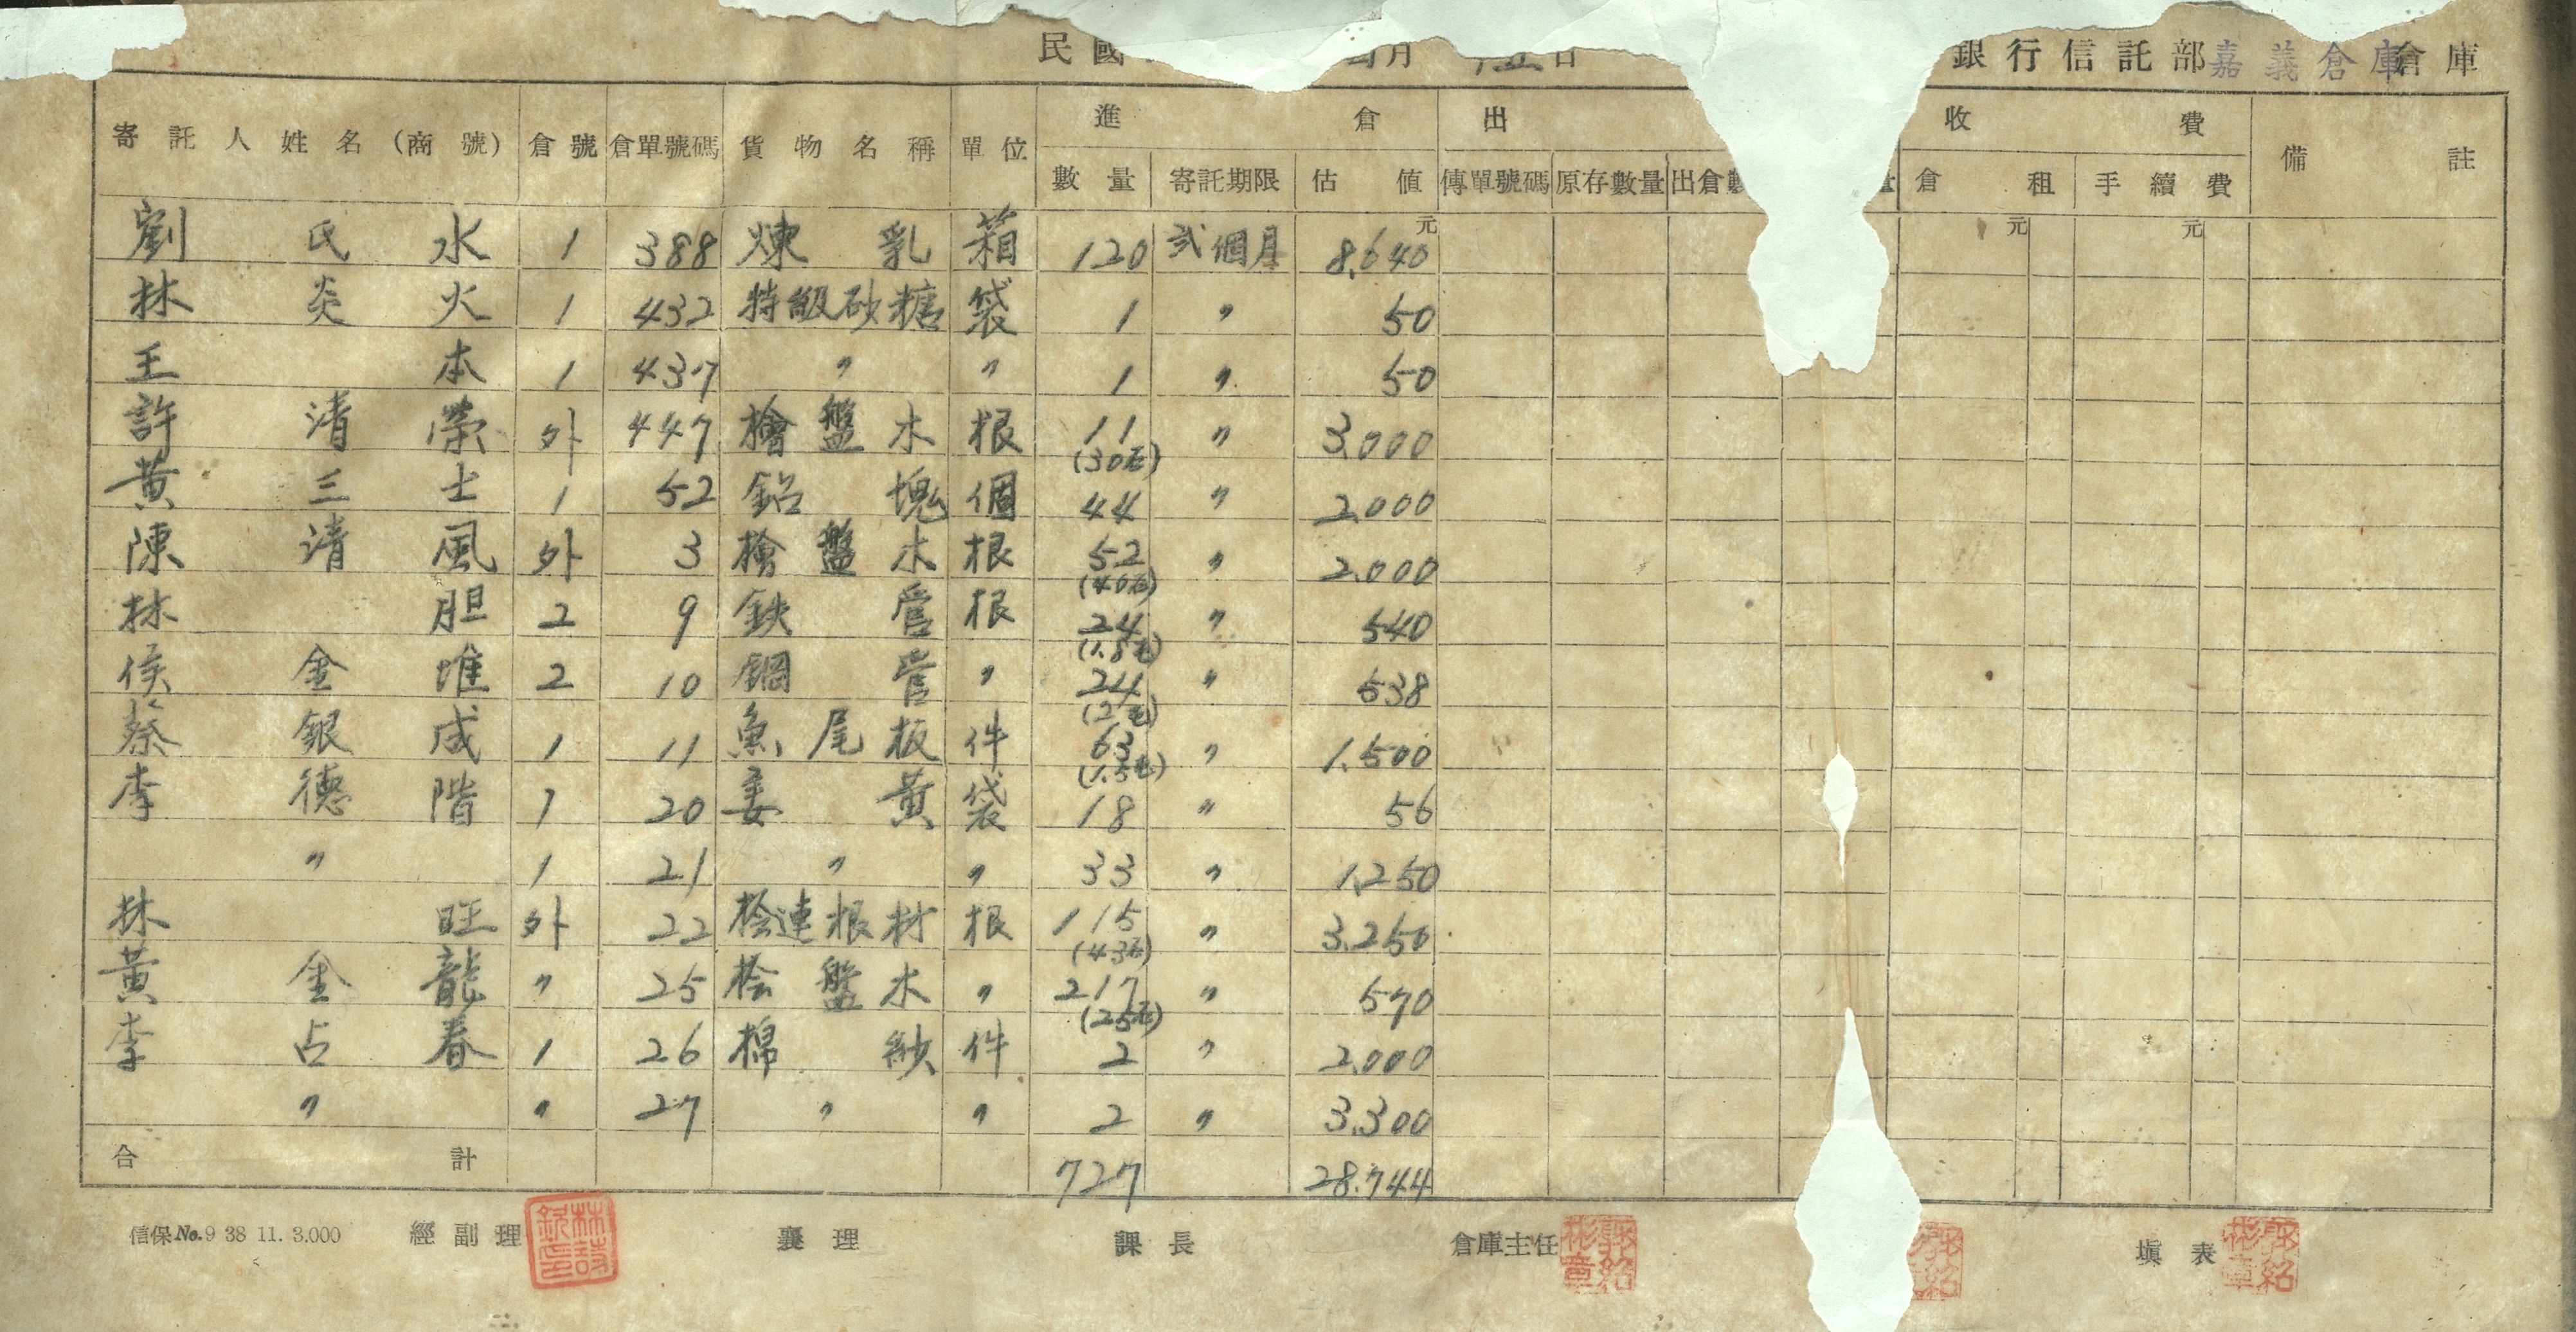 民國 月 日 銀行信託部嘉義倉庫倉庫
寄託人姓名(商號) 倉號 倉單號碼 貨物名稱 單位 進倉 出 收費 備註
數量 寄託期限 估值 傳單號碼 原存數量 出倉數 量 倉租 手續費
元 元 元
劉氏水 1 388 煉乳 箱 120 弍個月 8,640
林炎火 1 432 特級砂糖 袋 1 〃 50
王本 1 437 〃 〃 1 〃 50
許清榮 外 447 檜盤木 根 11 (30瓲) 〃 3.000
黃三士 1 52 鋁塊 個 44 〃 2.000
陳清風 外 3 檜盤木 根 52 (40瓲) 〃 2.000
林胆 2 9 鉄管 根 24 (1.8瓲) 〃 540
侯金堆 2 10 鋼管 〃 24 (2瓲) 〃 538
蔡銀成 1 11 魚尾板 件 63 (1.5瓲) 〃 1.500
李德階 1 20 姜黃 袋 18 〃 56
〃 1 21 〃 〃 33 〃 1,250
林旺 外 22 桧連根材 根 115 (43瓲) 〃 3.250
黃金龍 〃 25 桧盤木 〃 217 (25瓲) 〃 570
李占春 1 26 棉紗 件 2 〃 2.000
〃 〃 27 〃 〃 2 〃 3.300
合計 727 28.744
信保No.9 38 11. 3.000 經副理 襄理 課長 倉庫主任 填表